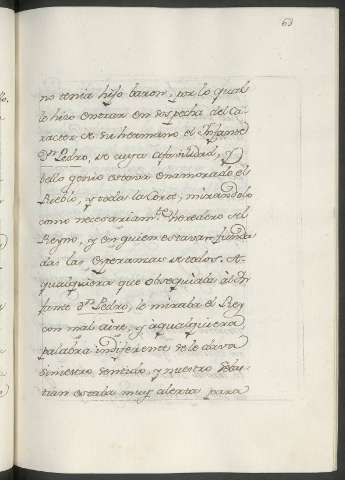 63
no tenia hijo baron, por lo qual
lo hizo entrar en despecho del Ca-
racter de su hermano el Infante
Dn. Pedro, de cuya afavilidad, y
bello genio estava enamorado el
Pueblo, y toda la Corte, mirandolo
como necesariamte. heredero del
Reyno, y en quien estavan funda
das las esperanzas de todos. A
qualquiera que obsequiaba al In
fante Dn. Pedro, le miraba el Rey
con mal aire, y à qualquiera
palabra indiferente de le dava
siniestro sentido, y nuestro Sebas
tian estaba muy alerta para